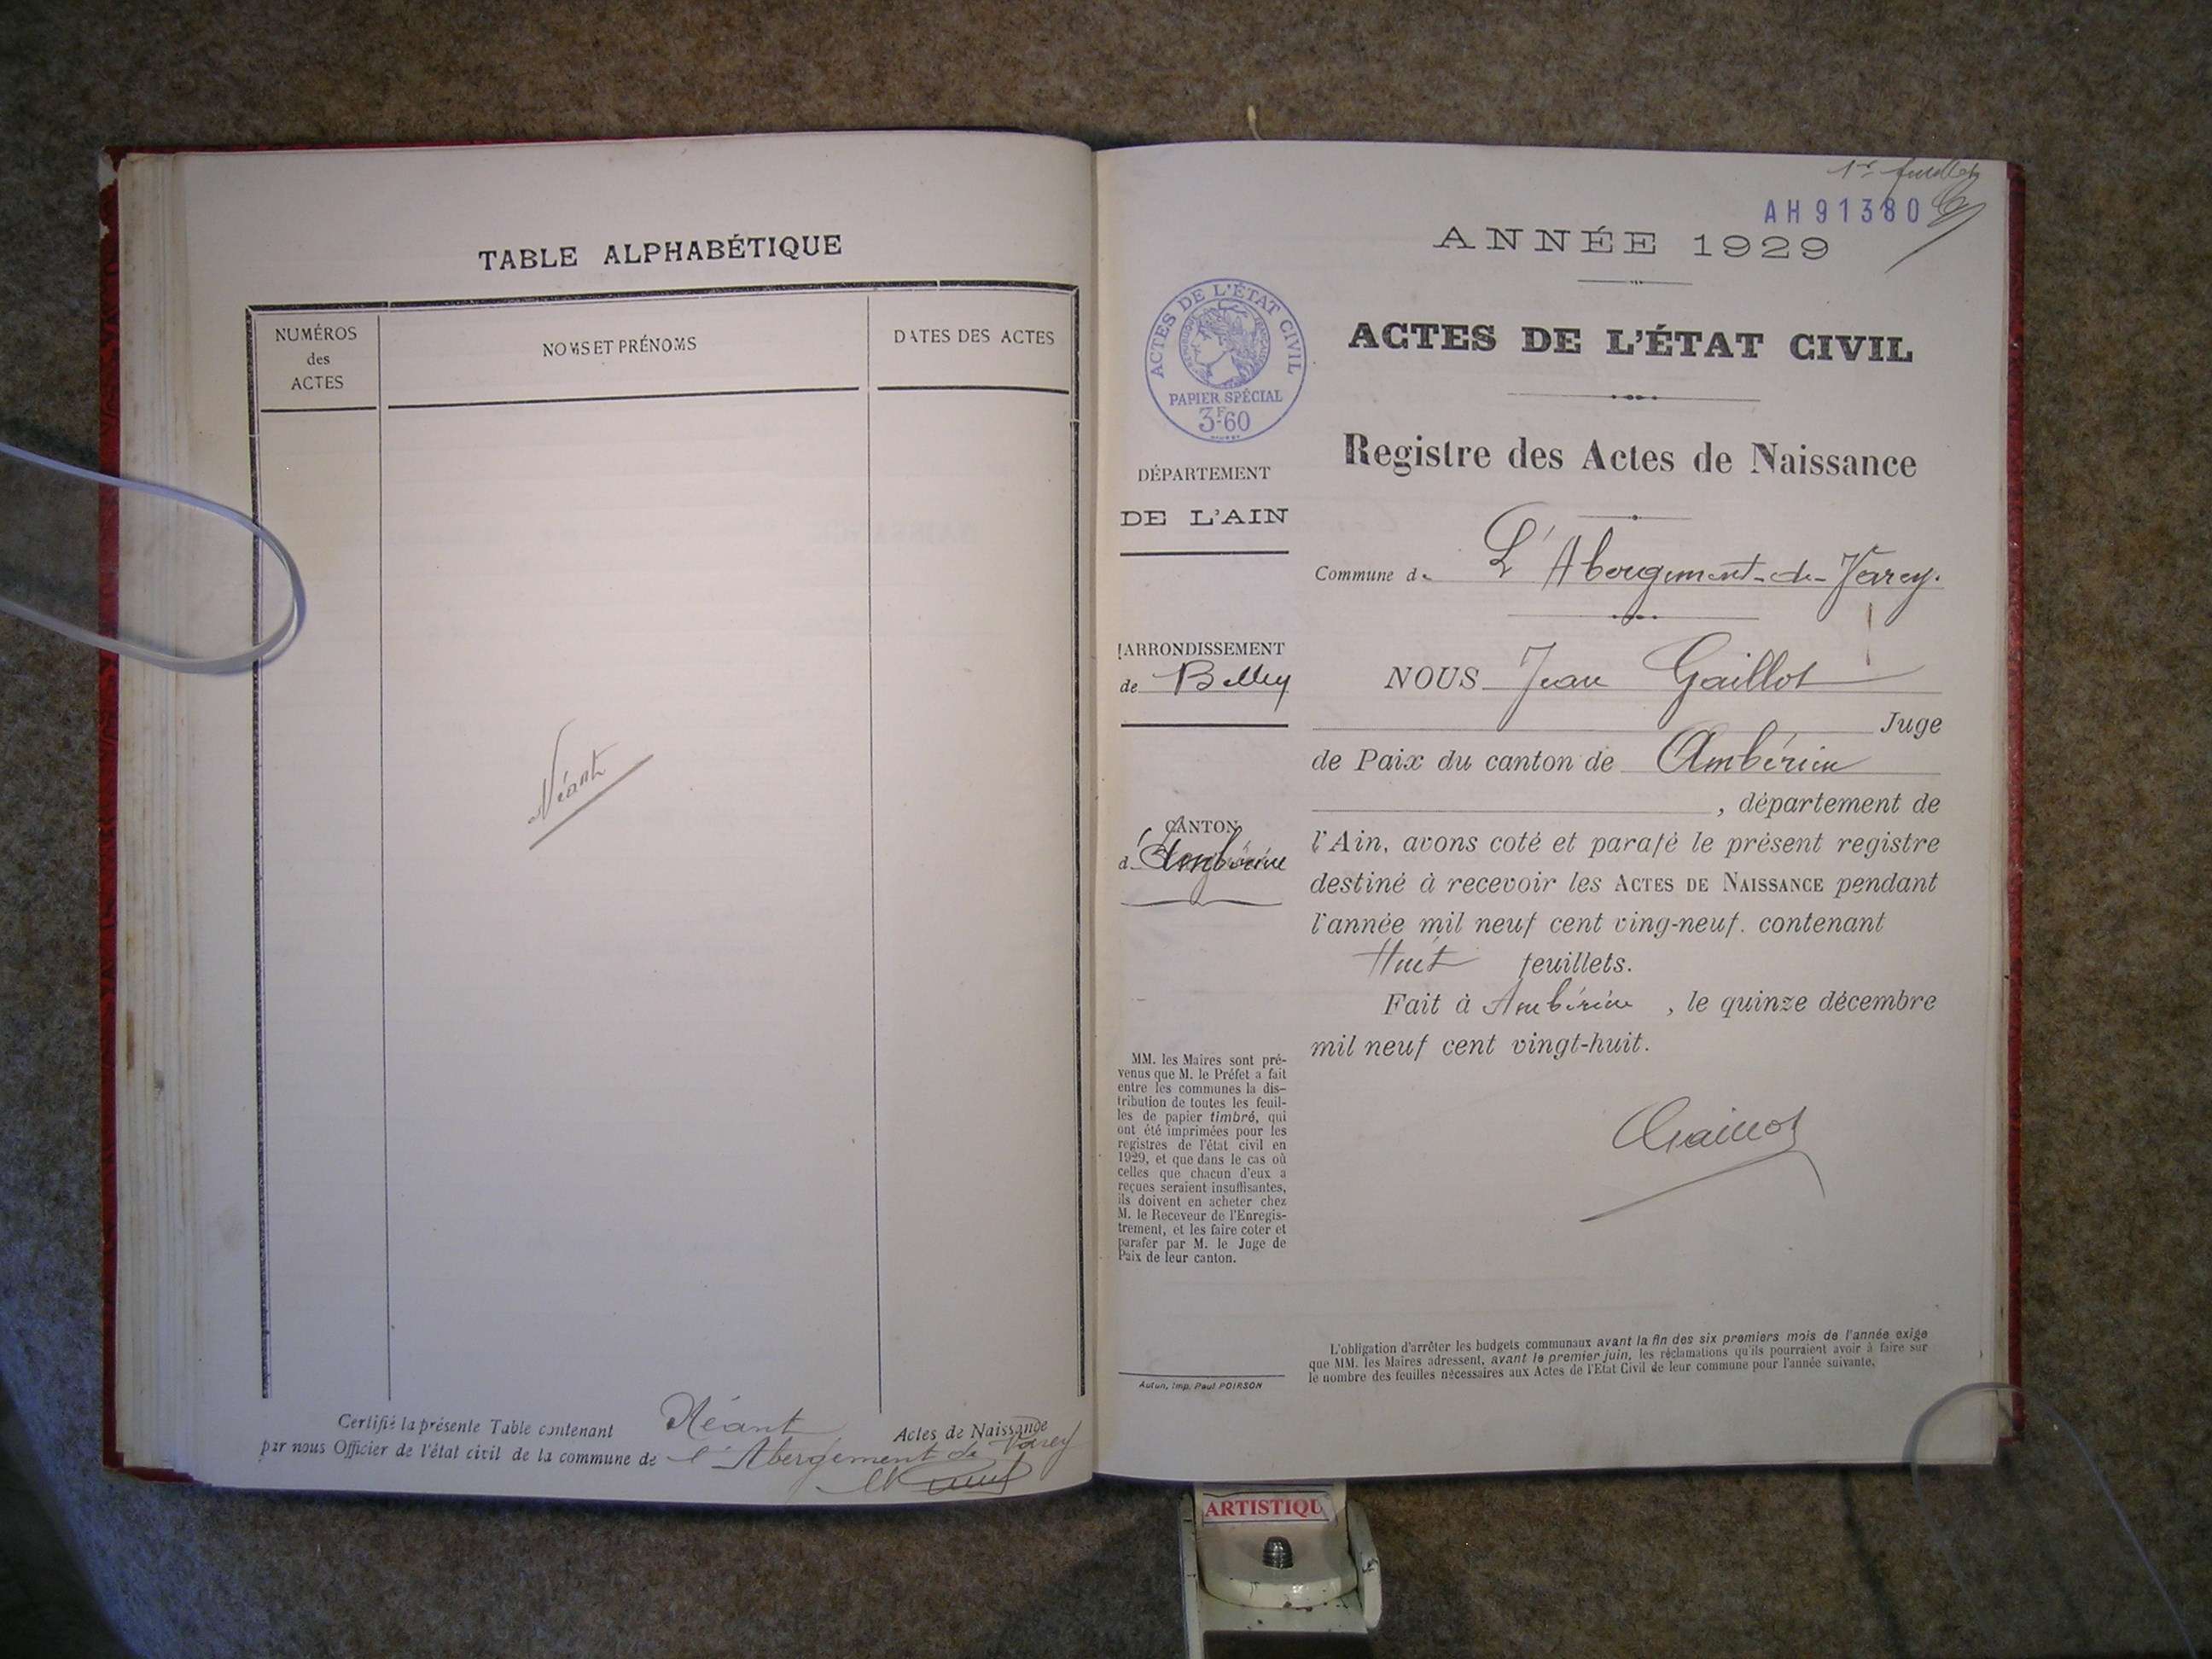 TABLE ALPHABÉTIQUE
NUMÉROS
des
ACTES
NOMS ET PRÉNOMS
DATES DES ACTES
Néant
Certifié la présente Table contenant Néant Actes de Naissance
par nous Officier de l'état civil de la commune de l'Abergement de Varey
1er feuillet
AH 91380
ANNÉE 1929
ACTES DE L'ÉTAT CIVIL
PAPIER SPÉCIAL
3F60
ACTES DE L'ÉTAT CIVIL
Registre des Actes de Naissance
DÉPARTEMENT
DE L'AIN
Commune de L'Abergement-de-Varey.
ARRONDISSEMENT
de Belley
NOUS Jean Gaillot
Juge
de Paix du canton de Ambérieu
, département de
CANTON
d'Ambérieu
l'Ain, avons coté et parafé le présent registre
destiné à recevoir les ACTES DE NAISSANCE pendant
l'année mil neuf cent ving-neuf. contenant
Huit feuillets.
Fait à Ambérieu, le quinze décembre
mil neuf cent vingt-huit.
Gaillot
MM. les Maires sont pré-
venus que M. le Préfet a fait
entre les communes la dis-
tribution de toutes les feuil-
les de papier timbré, qui
ont été imprimées pour les
registres de l'état civil en
1929, et que dans le cas où
celles que chacun d'eux a
reçues seraient insuffisantes,
ils doivent en acheter chez
M. le Receveur de l'Enregis-
trement, et les faire coter et
parafer par M. le Juge de
Paix de leur canton.
Autun, Imp. Paul POIRSON
L'obligation d'arrêter les budgets communaux avant la fin des six premiers mois de l'année exige
que MM. les Maires adressent, avant le premier juin, les réclamations qu'ils pourraient avoir à faire sur
le nombre des feuilles nécessaires aux Actes de l'Etat Civil de leur commune pour l'année suivante.
ARTISTIQU